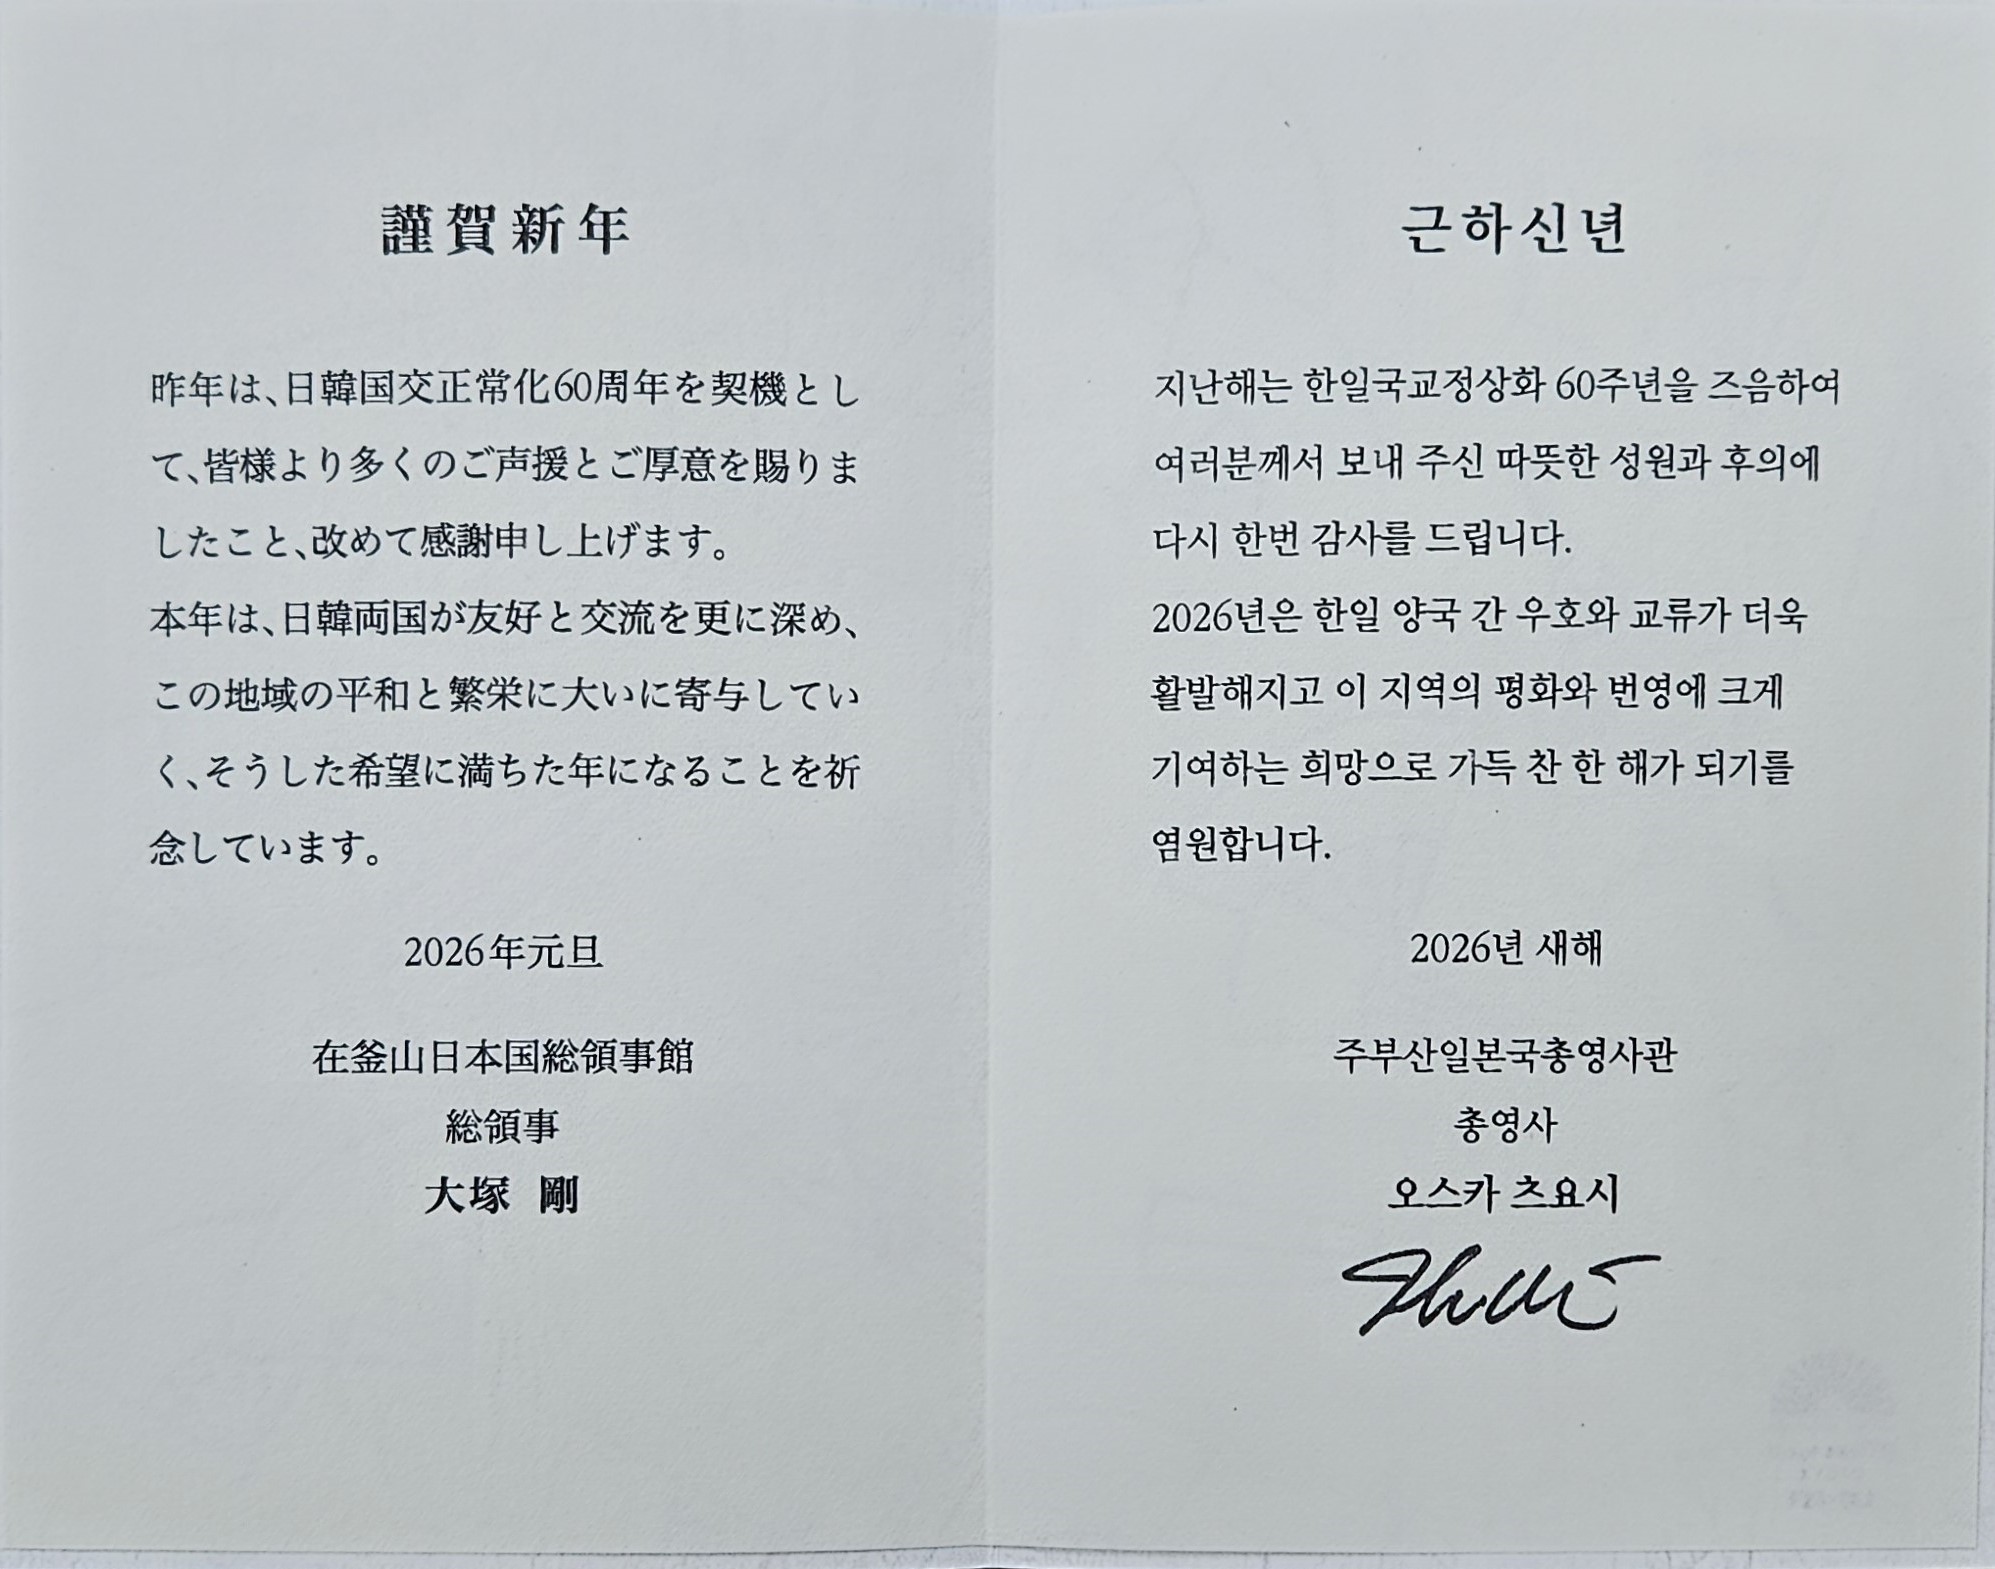 謹賀新年
昨年は、日韓国交正常化60周年を契機とし
て、皆様より多くのご声援とご厚意を賜りま
したこと、改めて感謝申し上げます。
本年は、日韓両国が友好と交流を更に深め、
この地域の平和と繁栄に大いに寄与してい
く、そうした希望に満ちた年になることを祈
念しています。
2026年元旦
在釜山日本国総領事館
総領事
大塚 剛
근하신년
지난해는 한일국교정상화 60주년을 즈음하여
여러분께서 보내 주신 따뜻한 성원과 후의에
다시 한번 감사를 드립니다.
2026년은 한일 양국 간 우호와 교류가 더욱
활발해지고 이 지역의 평화와 번영에 크게
기여하는 희망으로 가득 찬 한 해가 되기를
염원합니다.
2026년 새해
주부산일본국총영사관
총영사
오스카 츠요시